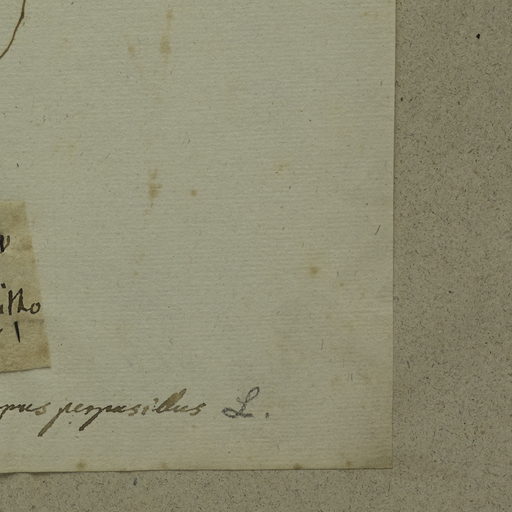 itho
pus perpusillus L.